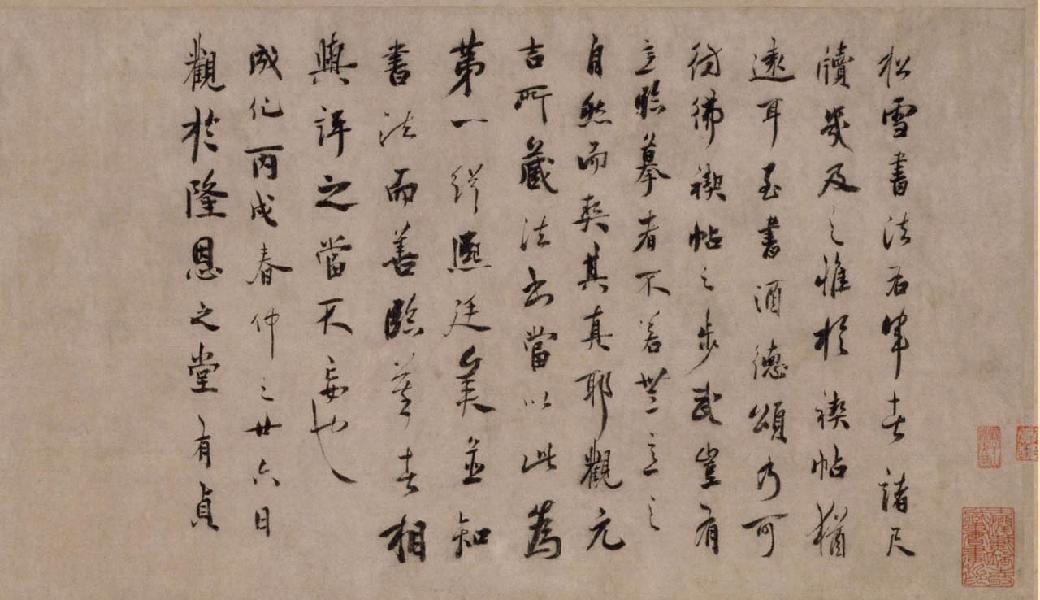 松雪書法右軍其諸尺
牘幾及之惟於禊帖猶
遠耳至書酒德頌乃可
彷彿禊帖之步武豈有
意臨摹者不若無意之
自然而契其真耶觀元
吉所藏法書當以此為
第一繹熙廷美並知
書法而善臨摹者相
與評之當不妄也
成化丙戌春仲之廿六日
觀於隆恩之堂有貞